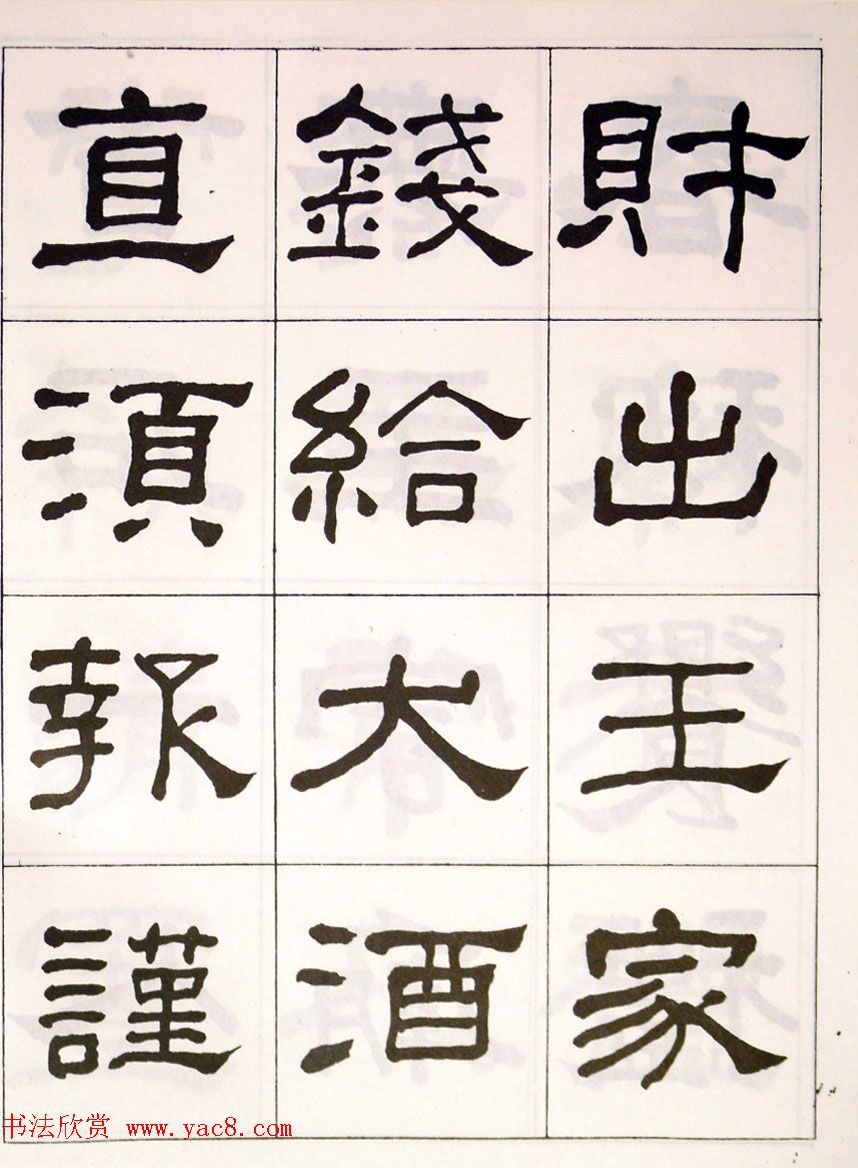 財出王家
錢給大酒
直須報謹
书法欣赏 www.yac8.com